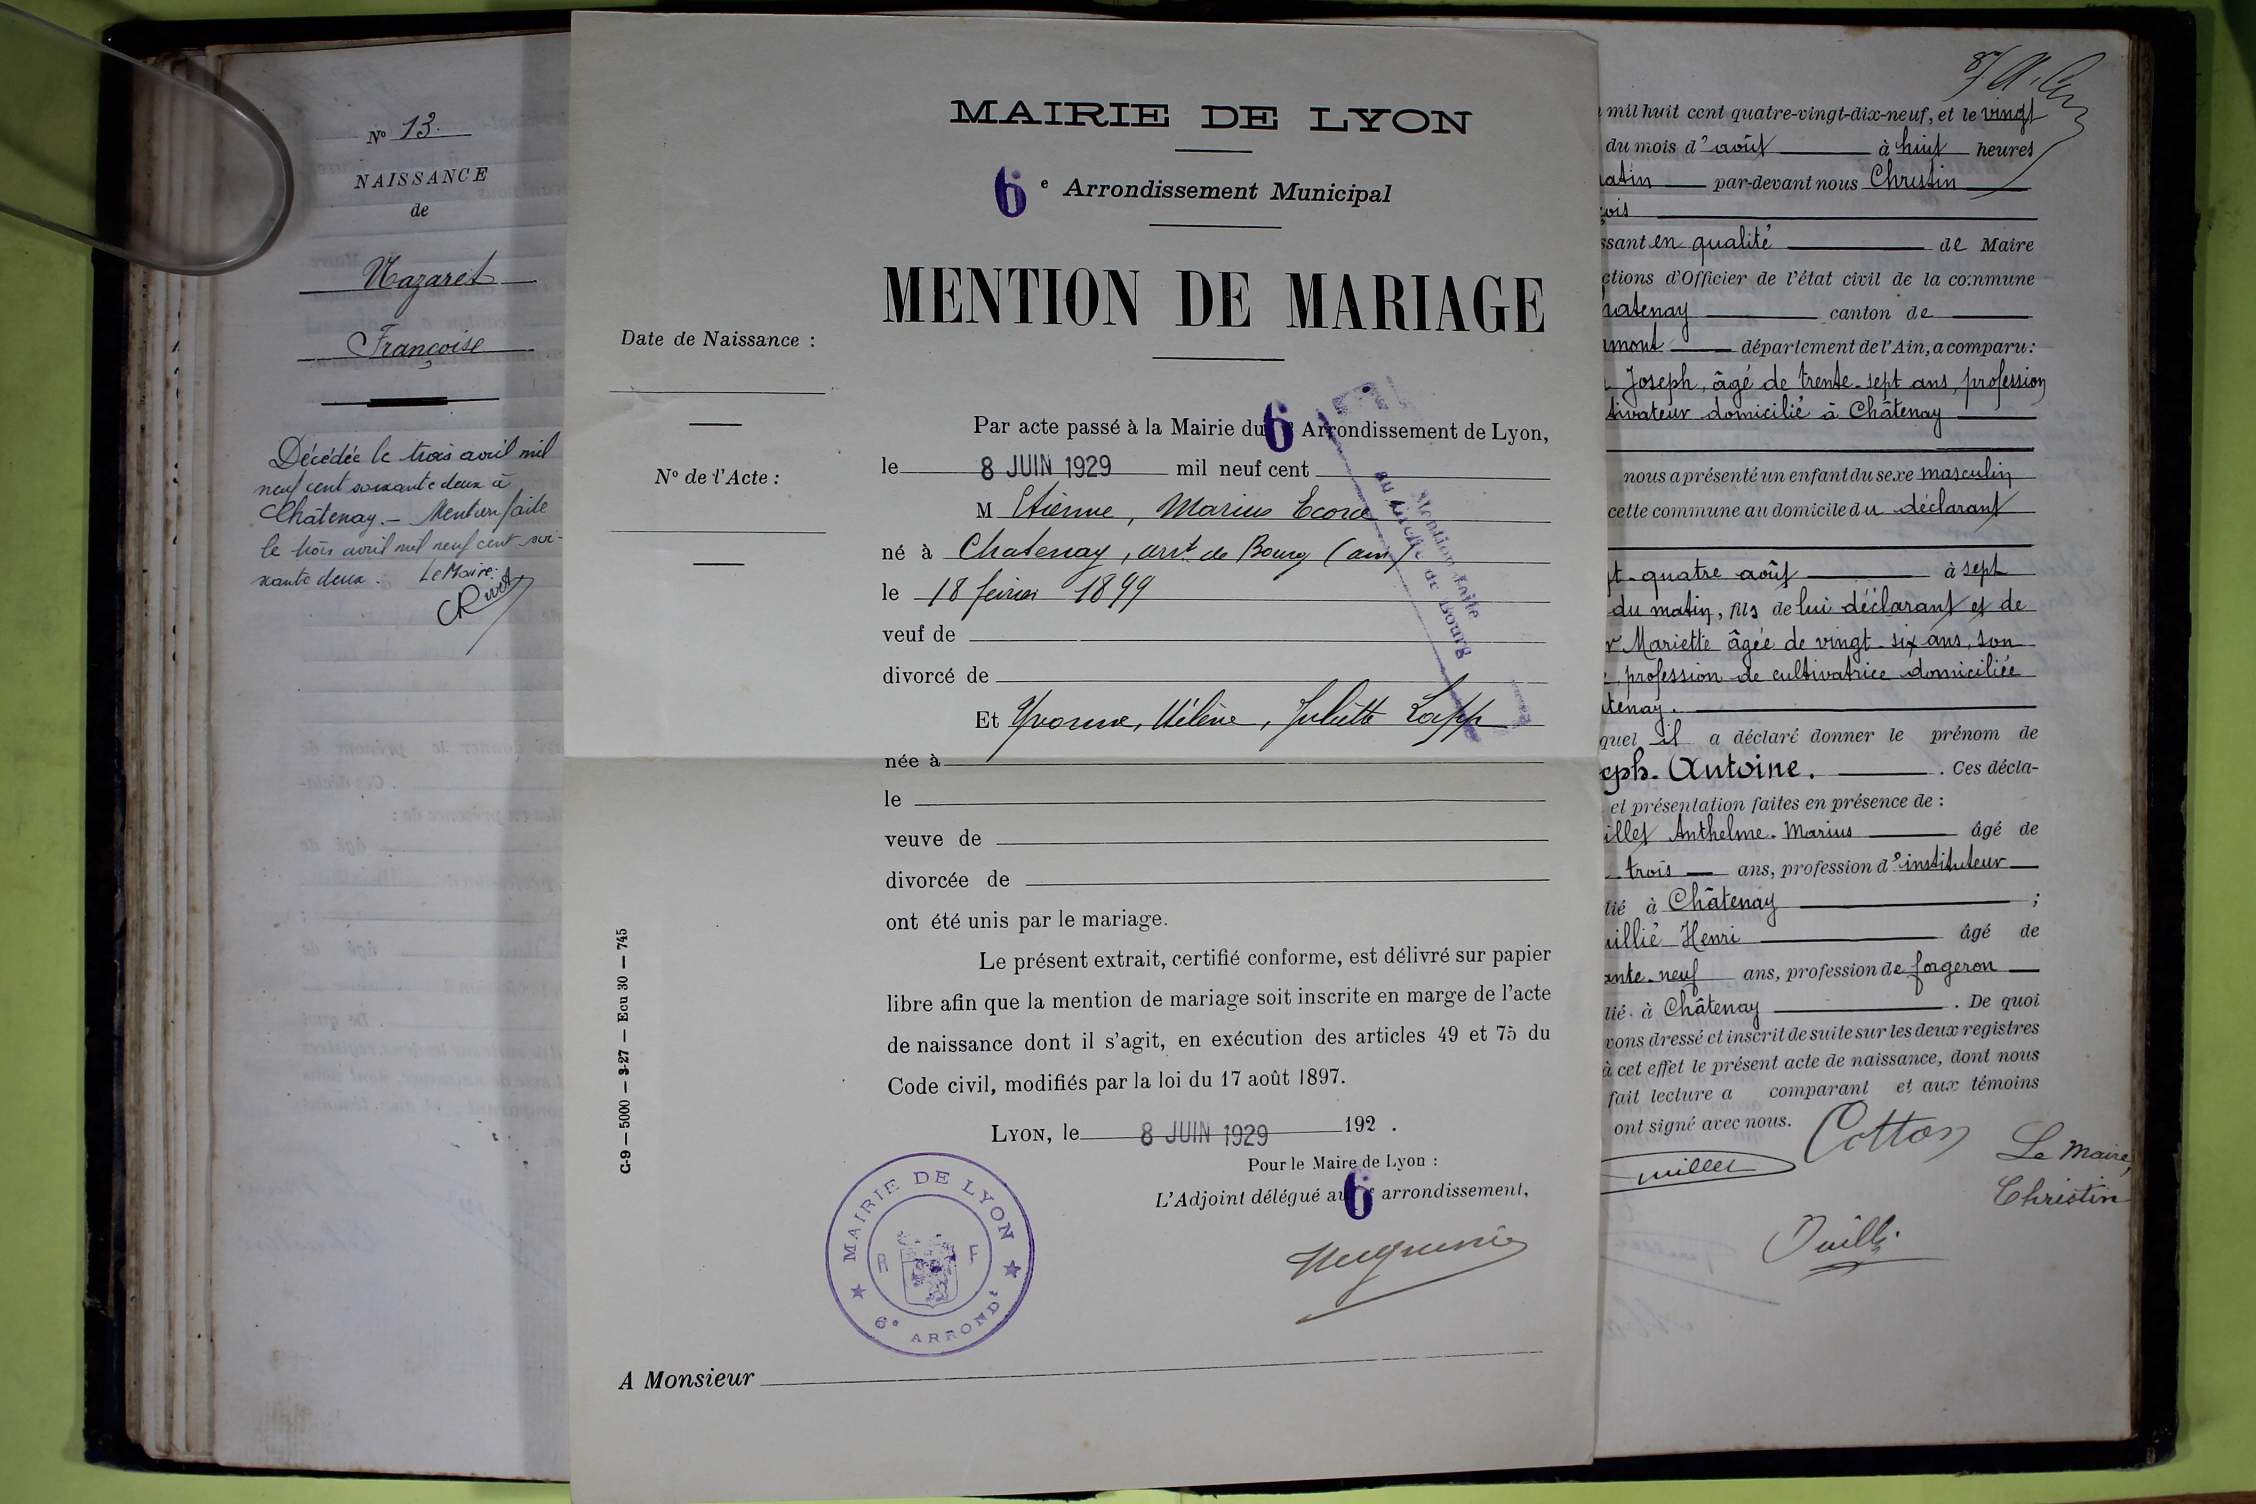 Nº 13.
NAISSANCE
de
Nazaret
Françoise
Décédée le trois avril mil
neuf cent soixante deux à
Châtenay. - Mention faite
le trois avril mil neuf cent soi-
xante deux. Le Maire.
CRivet
MAIRIE DE LYON
6 e Arrondissement Municipal
MENTION DE MARIAGE
Date de Naissance :
Nº de l'Acte :
Par acte passé à la Mairie du 6 Arrondissement de Lyon,
le 8 JUIN 1929 mil neuf cent
M Etienne, Marius Ecora
né à Chatenay, arrt de Bourg (ain)
le 18 février 1899
veuf de
divorcé de
Et Yvonne, Hélène, Juliette Lapp
née à
le
veuve de
divorcée de
ont été unis par le mariage.
Le présent extrait, certifié conforme, est délivré sur papier
libre afin que la mention de mariage soit inscrite en marge de l'acte
de naissance dont il s'agit, en exécution des articles 49 et 75 du
Code civil, modifiés par la loi du 17 août 1897.
LYON, le 8 JUIN 1929 192 .
Pour le Maire de Lyon :
L'Adjoint délégué au 6 arrondissement,
Mention faite
au Greffe de Bourg
MAIRIE DE LYON
R F
6e ARRONDt
C-9 — 5000 — 3-27 — Ecu 30 — 745
A Monsieur
mil huit cent quatre-vingt-dix-neuf, et le vingt
du mois d'août à huit heures
atin par-devant nous Christin
çois
ssant en qualité de Maire
ctions d'Officier de l'état civil de la commune
hatenay canton de
mont département de l'Ain, a comparu :
Joseph, âgé de trente-sept ans, profession
tivateur domicilié à Châtenay
nous a présenté un enfant du sexe masculin
cette commune au domicile du déclarant
t-quatre août à sept
du matin, fils de lui déclarant et de
Mariette âgée de vingt-six ans, son
profession de cultivatrice domiciliée
tenay.
quel il a déclaré donner le prénom de
eph-Antoine. . Ces décla-
et présentation faites en présence de :
illet Anthelme-Marius âgé de
trois ans, profession d'instituteur
lié à Châtenay ;
uillié Henri âgé de
ante-neuf ans, profession de forgeron
lié à Châtenay . De quoi
vons dressé et inscrit de suite sur les deux registres
à cet effet le présent acte de naissance, dont nous
fait lecture a comparant et aux témoins
ont signé avec nous.
Cotton
Le Maire,
uillet
Christin